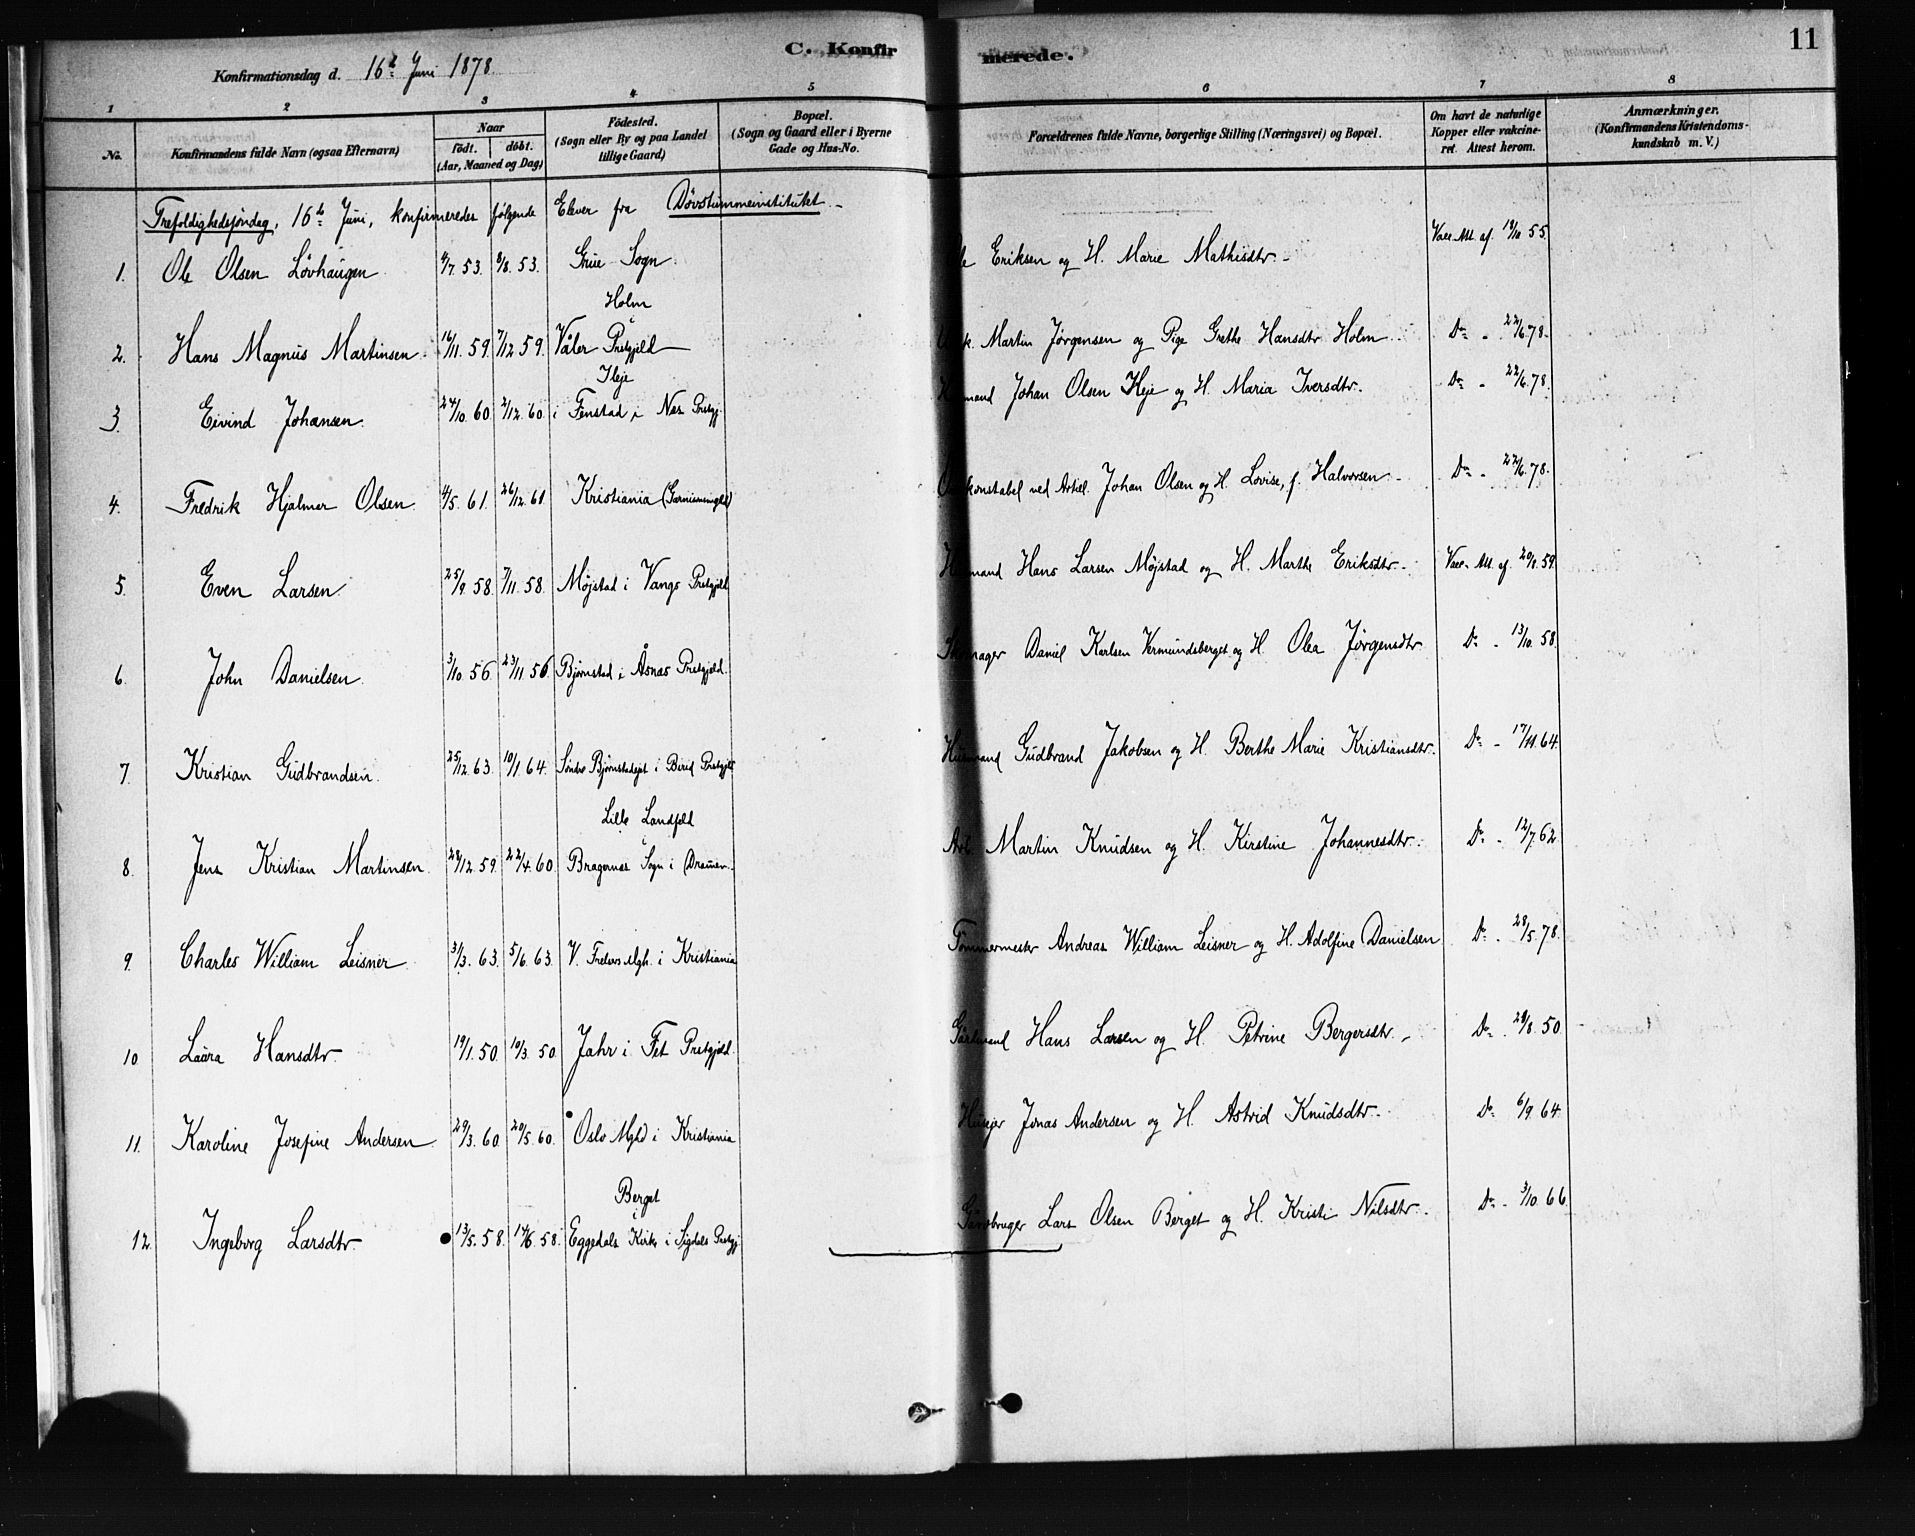 C. Konfirmerede. 11
Konfirmationsdag d. 16de Juni 1878.
1 2 3 4 5 6 7 8
No.
Konfirmandens fulde Navn (ogsaa Efternavn)
Naar
født. døbt.
(Aar, Maaned og Dag)
Fødested.
(Sogn eller By og paa Landet
tillige Gaard)
Bopæl.
(Sogn og Gaard eller i Byerne
Gade og Hus-No.
Forældrenes fulde Navne, borgerlige Stilling (Næringsvei) og Bopæl.
Om havt de naturlige
Kopper eller vakcine-
ret. Attest herom.
Anmærkninger.
(Konfirmandens Kristendoms-
kundskab m. V.)
Trefoldighedssøndag, 16de Juni, konfirmeredes følgende Elever fra Døvstummeinstitutet.
1. Ole Olsen Løvhaugen 4/7. 53. 8/8. 53. Grue Sogn Eriksen og H. Marie Mathisdtr. Vacc. Att. af 19/10 55.
Holm
i
2. Hans Magnus Martinsen 16/11. 59. 7/12 59. Våler Prstgjeld Martin Jørgensen og Pige Grethe Hansdtr Holm Do - 22/6. 78.
Ileje
3. Eivind Johansen. 24/10. 60. 2/12. 60. i Fenstad i Nes Prstgj. Johan Olsen Ileje og H. Maria Iversdtr. Do - 22/6. 78.
4. Fredrik Hjalmar Olsen. 4/5. 61. 26/12. 61. Kristiania (Garnisonmgld) konstabel ved Artiel. Johan Olsen og H. Lovise, f. Halvorsen Do - 22/6. 78.
5. Even Larsen. 25/9. 58. 7/11. 58. Møjstad i Vangs Prstgjeld Husmand Hans Larsen Møjstad og H. Marthe Eriksdtr. Vacc. Att. af 20/9. 59.
6. John Danielsen. 3/10. 56. 23/11. 56. Bjørnstad i Åsnas Prstgjeld. Skomager Daniel Karlsen Vermundsberget og H. Olea Jørgensdtr Do - 13/10. 58.
7. Kristian Gudbrandsen. 25/12. 63. 10/1. 64. Søndre Bjørnstadejet i Birid Prstgjeld Husmand Gudbrand Jakobsen og H. Berthe Marie Kristiansdtr. Do - 17/11. 64.
Lille Landfald
i
8. Jens Kristian Martinsen. 22/12. 59. 22/4. 60. Bragernas Sogn i Dramen. Arb. Martin Knudsen og H. Kirstine Johannesdtr. Do - 12/7. 62.
9. Charles William Leisner. 3/3. 63. 5/6. 63. V. Frelsrs Mgh. i Kristiania Tømmermester Andreas William Leisner og H. Adolfine Danielsen Do - 28/5. 78.
10. Laura Hansdtr. 19/1. 50. 10/3. 50. Jahr i Fet Prstgjeld. Hans Larsen og H. Petrine Bergersdtr. Do - 29/8. 50
11. Karoline Josefine Andersen 29/3. 60. 20/5. 60. Oslo Mgld i Kristiania Husejer Jonas Andersen og H. Astrid Knudsdtr. Do - 6/9. 64.
Berget
i
12. Ingeborg Larsdtr. 13/5. 58. 14/6. 58. Eggedals Kirke i Sigdals Prstgj Gårdbruger Lars Olsen Berget og H. Kristi Nilsdtr. Do - 3/10. 66.